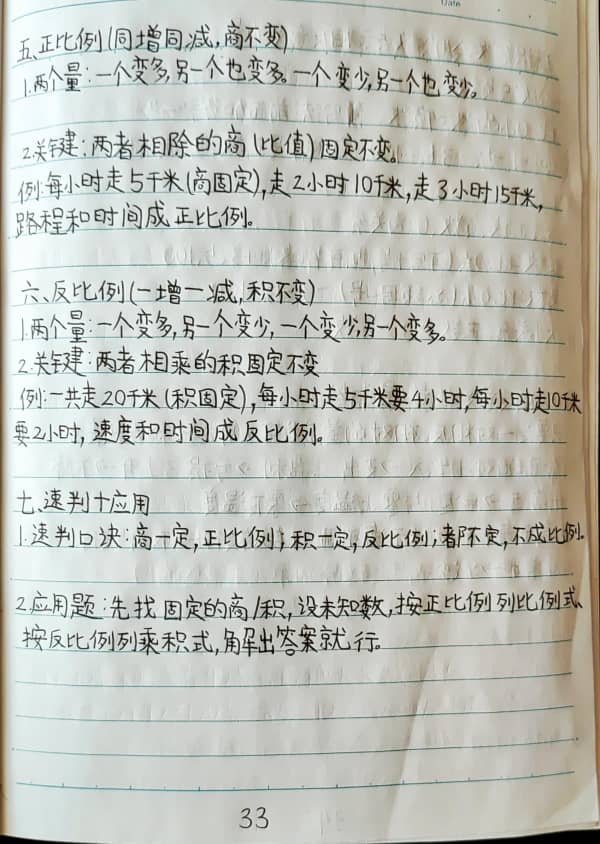 Date
五、正比例(同增同减,商不变)
1.两个量:一个变多,另一个也变多。一个变少,另一个也变少。
2.关键:两者相除的商(比值)固定不变。
例:每小时走5千米(商固定),走2小时10千米,走3小时15千米,
路程和时间成正比例。
六、反比例(一增一减,积不变)
1.两个量:一个变多,另一个变少,一个变少,另一个变多。
2.关键:两者相乘的积固定不变
例:一共走20千米(积固定),每小时走5千米要4小时,每小时走10千米
要2小时,速度和时间成反比例。
七、速判十应用
1.速判口决:商一定,正比例;积一定,反比例;都不定,不成比例.
2.应用题:先找固定的商/积,设未知数,按正比例列比例式、
按反比例列乘积式,解出答案就行。
33